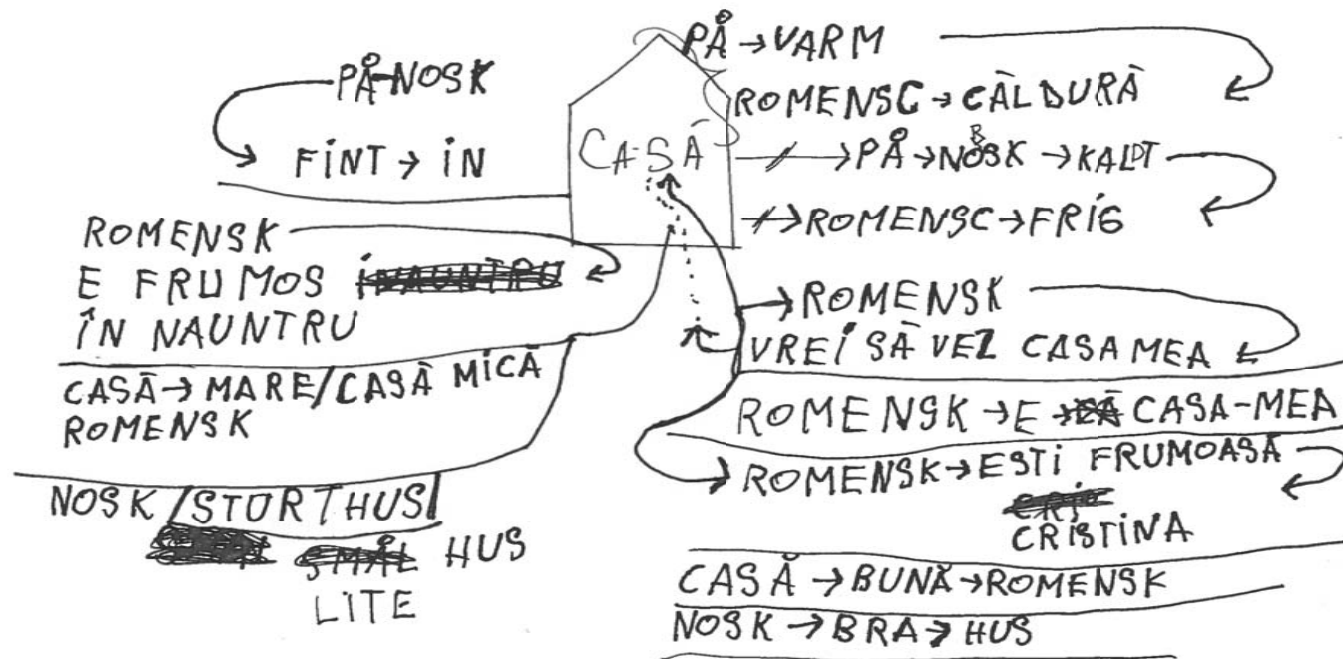 PÅ-NOSK
FINT → IN
ROMENSK
E FRUMOS
ÎN NAUNTRU
CASĂ → MARE/CASĂ MICĂ
ROMENSK
NOSK /STORTHUS/
SMÅL HUS
LITE
CA-SĂ
PÅ → VARM
ROMENSC → CĂLDURĂ
→ PÅ → NOSK → KALDT
→ ROMENSC → FRIG
→ ROMENSK
VREI SĂ VEZ CASA MEA
ROMENSK → E → CASA-MEA
ROMENSK → ESTI FRUMOASĂ
CRISTINA
CASĂ → BUNĂ → ROMENSK
NOSK → BRA → HUS